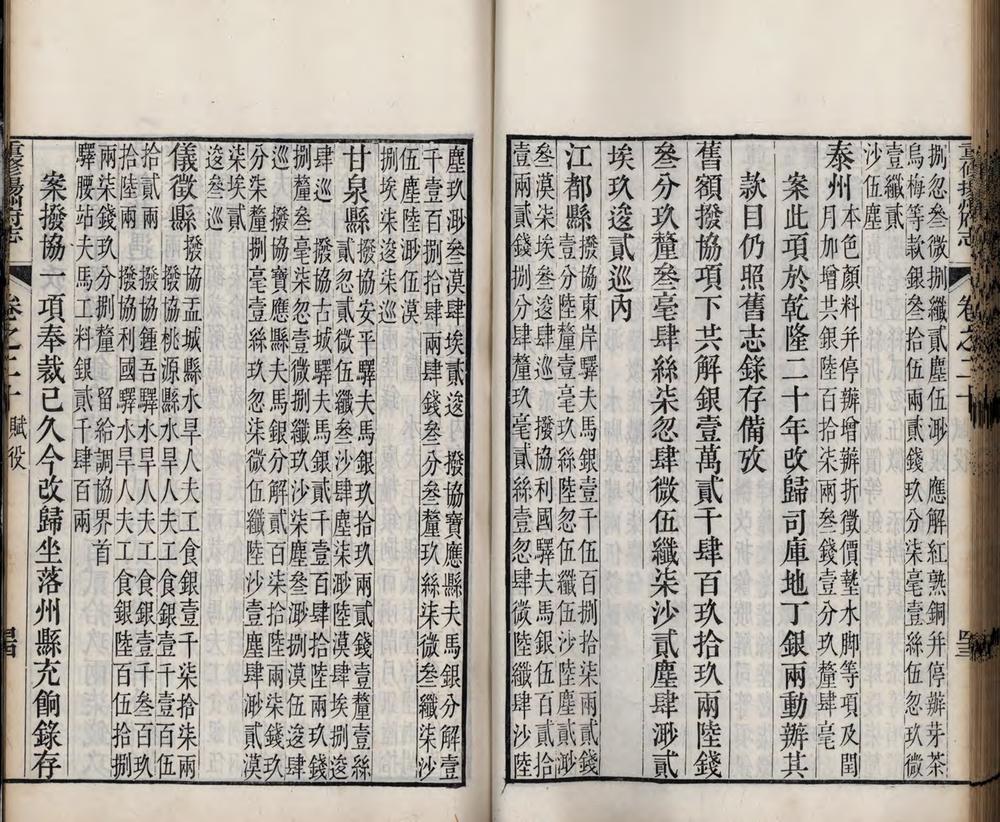 重修揚州府志
卷之二十
捌忽叁微捌纖貳塵伍渺 應解紅熟銅并停辦芽茶
烏梅等款銀叁拾伍兩貳錢玖分柒毫壹絲伍忽玖微
壹纖貳
沙伍塵
泰州
本色顏料并停辦增辦折徵價墊水脚等項及閏
月加增共銀陸百拾柒兩叁錢壹分玖釐肆毫
案此項於乾隆二十年改歸司庫地丁銀兩動辦其
款目仍照舊志錄存備攷
舊額撥協項下共解銀壹萬貳千肆百玖拾玖兩陸錢
叁分玖釐叁毫肆絲柒忽肆微伍纖柒沙貳塵肆渺貳
埃玖逡貳巡內
江都縣
撥協東岸驛夫馬銀壹千伍百捌拾柒兩貳錢
壹分陸釐壹毫玖絲陸忽伍纖伍沙陸塵貳渺
叁漠柒埃叁逡肆巡 撥協利國驛夫馬銀伍百貳拾
壹兩貳錢捌分肆釐玖毫貳絲壹忽肆微陸纖肆沙
塵玖渺叁漠肆埃貳逡 撥協寶應縣夫馬銀分解壹
千壹百捌拾肆兩肆錢叁分叁釐玖絲柒微叁纖柒沙
伍塵陸渺伍漠
捌埃柒逡柒巡
甘泉縣
撥協安平驛夫馬銀玖拾玖兩貳錢壹釐壹絲
貳忽貳微伍纖叁沙肆塵柒渺陸漠肆埃捌逡
肆巡 撥協古城驛夫馬銀貳千壹百肆拾陸兩玖錢
捌釐叁毫柒忽壹微捌纖玖沙柒塵叁渺捌漠伍逡肆
巡 撥協寶應縣夫馬銀分解貳百柒拾陸兩柒錢玖
分柒釐捌毫壹絲玖忽柒微伍纖陸沙壹塵肆渺貳漠
柒埃貳
逡叁巡
儀徵縣
撥協盂城驛水旱八夫工食銀壹千柒拾柒兩
撥協桃源縣水旱人夫工食銀壹千壹百伍
拾貳兩 撥協鍾吾驛水旱人夫工食銀壹千叁百玖
拾陸兩 撥協利國驛水旱人夫工食銀陸百伍拾捌
兩柒錢玖分捌釐 留給調協界首
驛腰站夫馬工料銀貳千肆百兩
案撥協一項奉裁已久今改歸坐落州縣充餉錄存
重修揚州府志
卷之二十 賦役